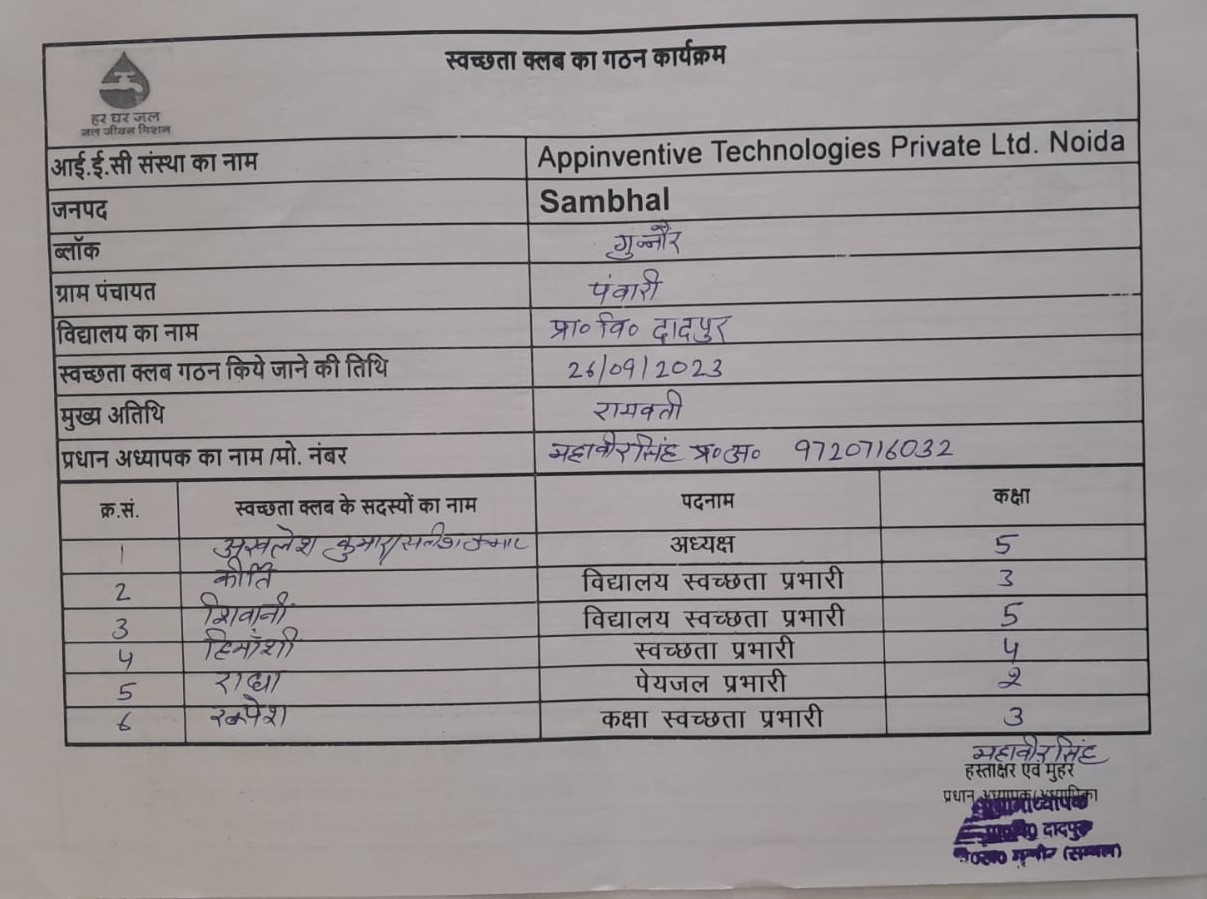 स्वच्छता क्लब का गठन कार्यक्रम
हर घर जल
जल जीवन मिशन
आई.ई.सी संस्था का नाम Appinventive Technologies Private Ltd. Noida
जनपद Sambhal
ब्लॉक गुन्नौर
ग्राम पंचायत पंवारी
विद्यालय का नाम प्रा० वि० दादपुर
स्वच्छता क्लब गठन किये जाने की तिथि 26/09/2023
मुख्य अतिथि रामवती
प्रधान अध्यापक का नाम /मो. नंबर महावीर सिंह प्र०अ० 9720716032
क्र.सं. स्वच्छता क्लब के सदस्यों का नाम पदनाम कक्षा
1 अखलेश कुमार/ अध्यक्ष 5
2 कीर्ति विद्यालय स्वच्छता प्रभारी 3
3 शिवानी विद्यालय स्वच्छता प्रभारी 5
4 हिमाँशी स्वच्छता प्रभारी 4
5 राधा पेयजल प्रभारी 2
6 कक्षा स्वच्छता प्रभारी 3
महावीर सिंह
हस्ताक्षर एवं मुहर
प्रधान अध्यापक/अध्यापिका
प्रधानाध्यापक
दादपुर
गुन्नौर (सम्भल)